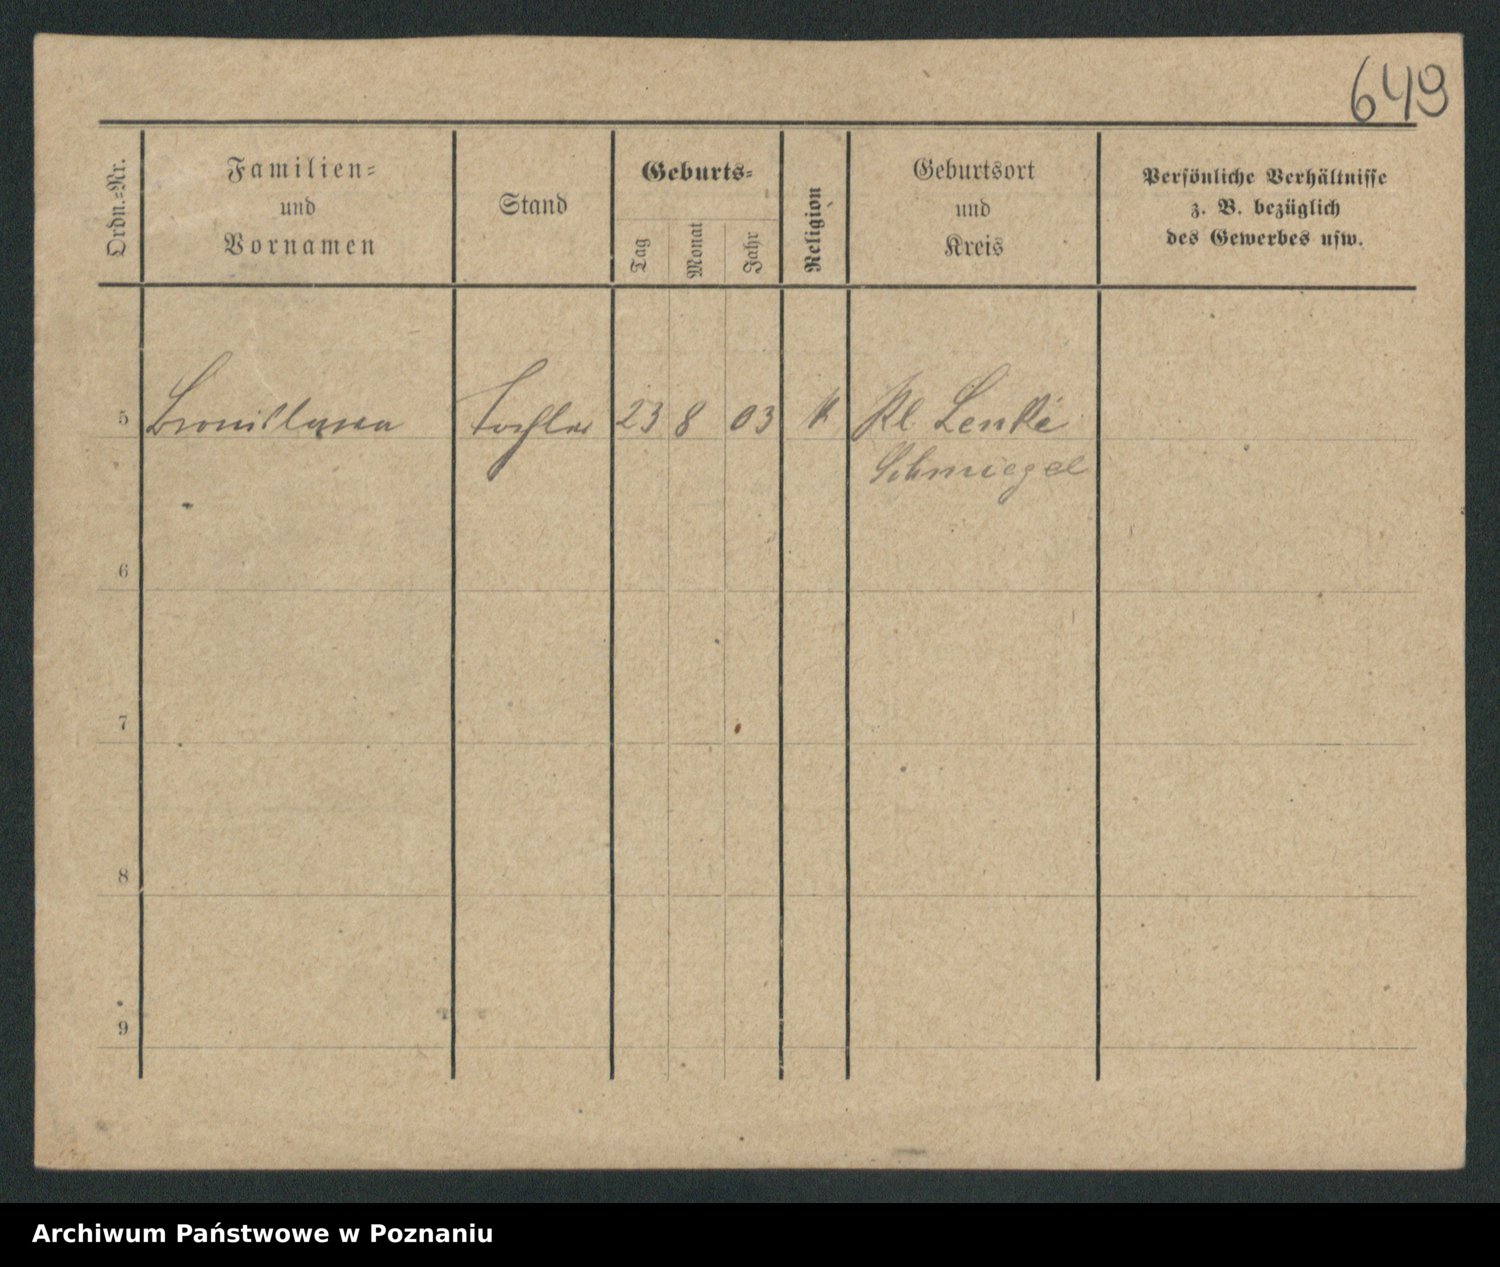 649
Ordn.-Nr.
Familien-
und
Vornamen
Stand
Geburts-
Tag
Monat
Jahr
Religion
Geburtsort
und
Kreis
Persönliche Verhältnisse
z. B. bezüglich
des Gewerbes usw.
5 Tochter 23 8 03 K Kl Lenki
Schmiegel
6
7
8
9
Archiwum Państwowe w Poznaniu